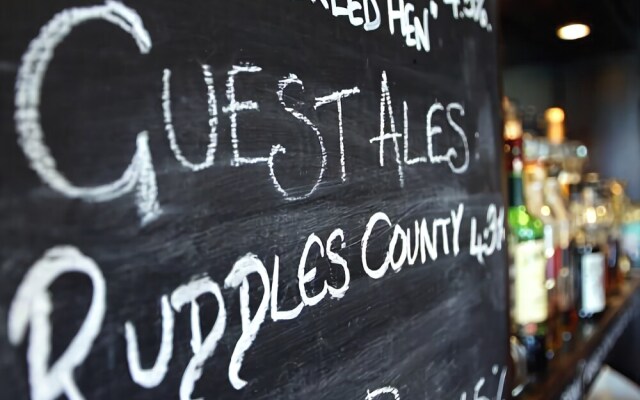 HEN' 4.5%.
GUEST ALES:
RUDDLES COUNTY 4.3%